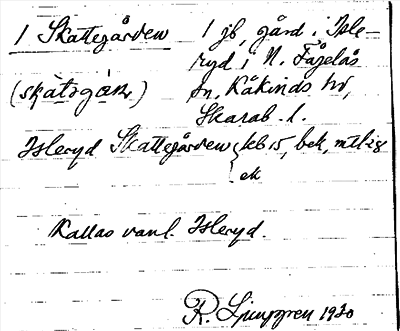 1 Skattegården
1 jb, gård i Isle-
ryd i N. Fågelås
sn. Kåkinds hd,
Skarab. l.
(skàtəgàɳ)
Isleryd Skattegården
kb 15, bek, mtl
ek
Kallas vanl. Isleryd.
R. Ljunggren 1920